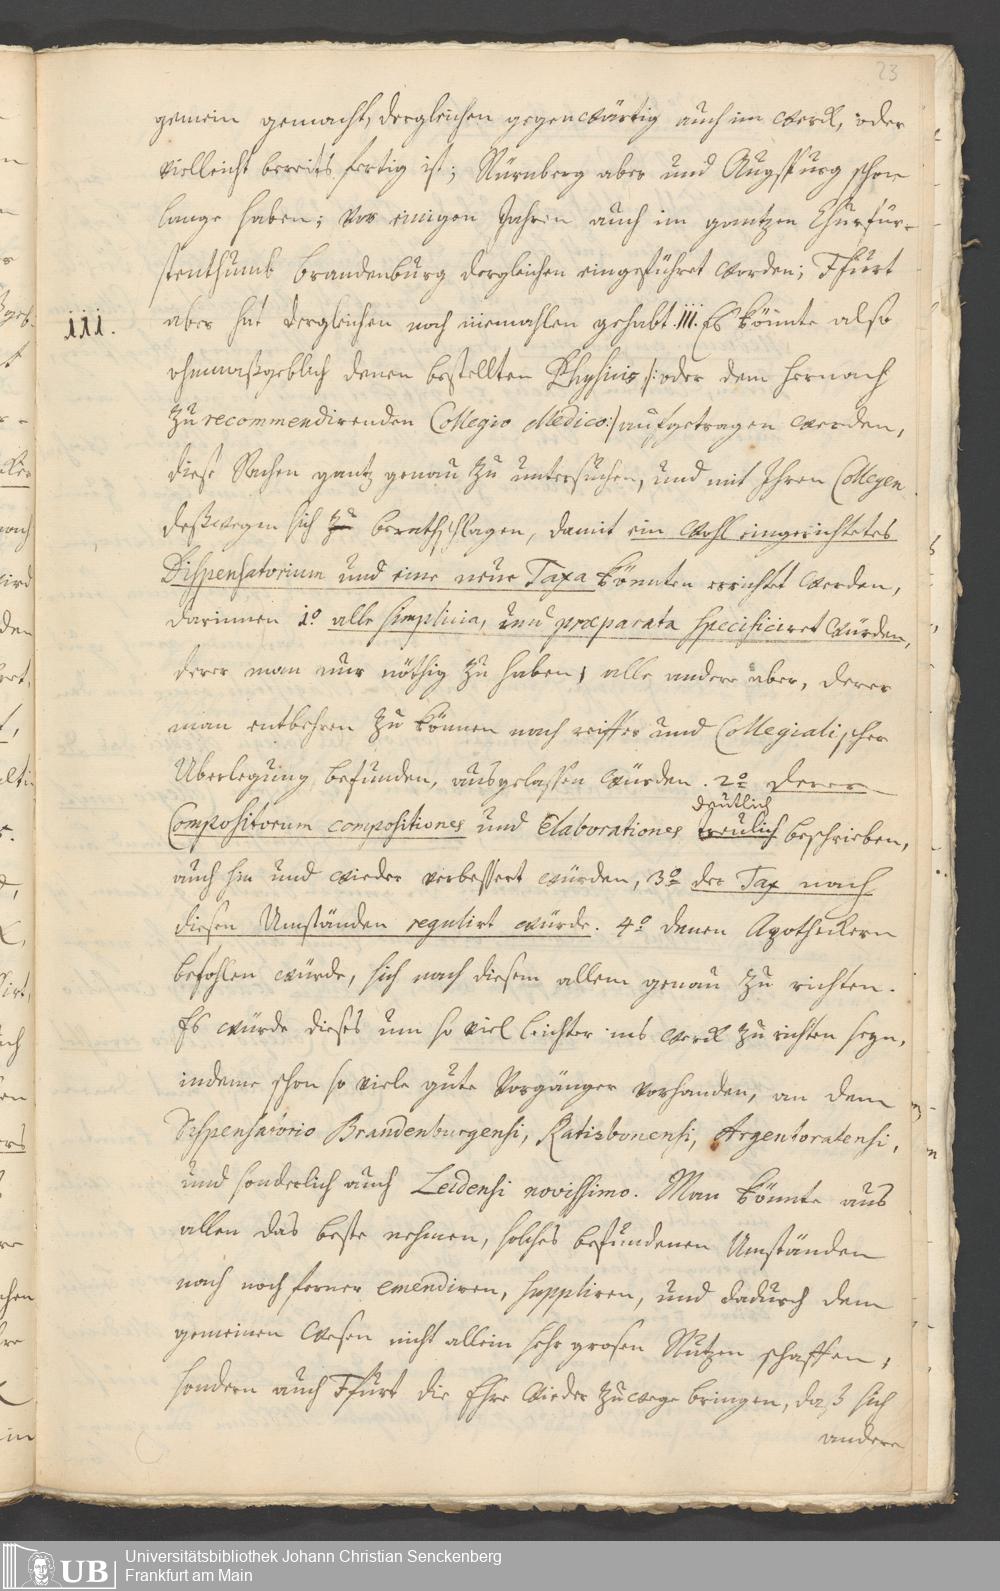 23
gemein gemacht, dergleichen gegenwärtig auch im Werck, oder
vielleicht bereits fertig ist; Nürnberg aber und Augspurg schon
lange haben; Vor einigen Jahren auch im gantzen Churfür-
stenthumb Brandenburg dergleichen eingeführet worden; Ffurt
iii.
aber hat dergleichen noch niemahlen gehabt. iii. Es könnte also
ohnmaßgeblich denen bestellten Physicis /: oder dem hernach
zu recommendirenden Collegio Medico:/ aufgetragen werden,
diese Sachen gantz genau zu untersuchen, und mit Ihren Collegen
deßwegen sich zu berathschlagen, damit ein wohl eingerichtetes
Dispensatorium und eine neue Taxa könnten errichtet werden,
darinnen 1o alle simplicia, und præparata specificiret würden,
derer man nur nöthig zu haben; alle andere aber, derer
man entbehren zu können nach reiffer und Collegialischer
Uberlegung befunden, ausgelassen würden. 2o derer
deutlich
Compositorum compositiones und Elaborationes treulich beschrieben,
auch hin und wieder verbessert würden, 3o der Tax nach
diesen Umständen regulirt würde. 4o denen Apotheckern
befohlen würde, sich nach diesem allem genau zu richten.
Es würde dieses um so viel leichter ins Werck zu richten seyn,
indeme schon so viele gute Vorgänger vorhanden, an dem
Dispensatorio Brandenburgensi, Ratisbonensi, Argentoratensi,
und sonderlich auch Leidensi novissimo. Man könnte aus
allen das beste nehmen, solches befundenen Umständen
nach noch ferner emendiren, suppliren, und dadurch dem
gemeinen Wesen nicht allein sehr grosen Nutzen schaffen,
sondern auch Ffurt die Ehre wieder zuwege bringen, daß sich
andere
UB Universitätsbibliothek Johann Christian Senckenberg
Frankfurt am Main